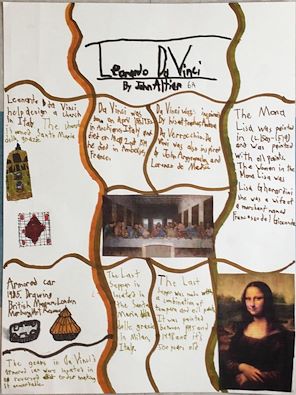 Leonardo Da Vinci
By John Altier 6A
Leonardo da Vinci
help design a church
in Italy. The church
is named Santa Maria
delle grazie.
Da Vinci was
born on April 15, 1452
in Anchiano, Italy and
died on
he died in Amboise,
France.
Da Vinci was inspired
by his
Verrocchio. Da
Vinci was also inspired
by John Argyropoulos, and
Lorenzo de Medici.
The Mona
Lisa was painted
in (1503-1519)
and was painted
with oil paint.
The woman in the
Mona Lisa was
Lisa Gherardini
she was a wife of
a merchant named
Francesco del Giocondo.
Armored car
1485. Drawing
British Museum, London
The gears in da Vinci's
armored car were located in
a reversed order making it
The Last
Supper is
located in
Santa
Maria
delle grazie
in Milan,
Italy.
The Last
Supper was made with
a combination of
tempera and oil paint
on
between 1495 and
1498 and it's
500 years old